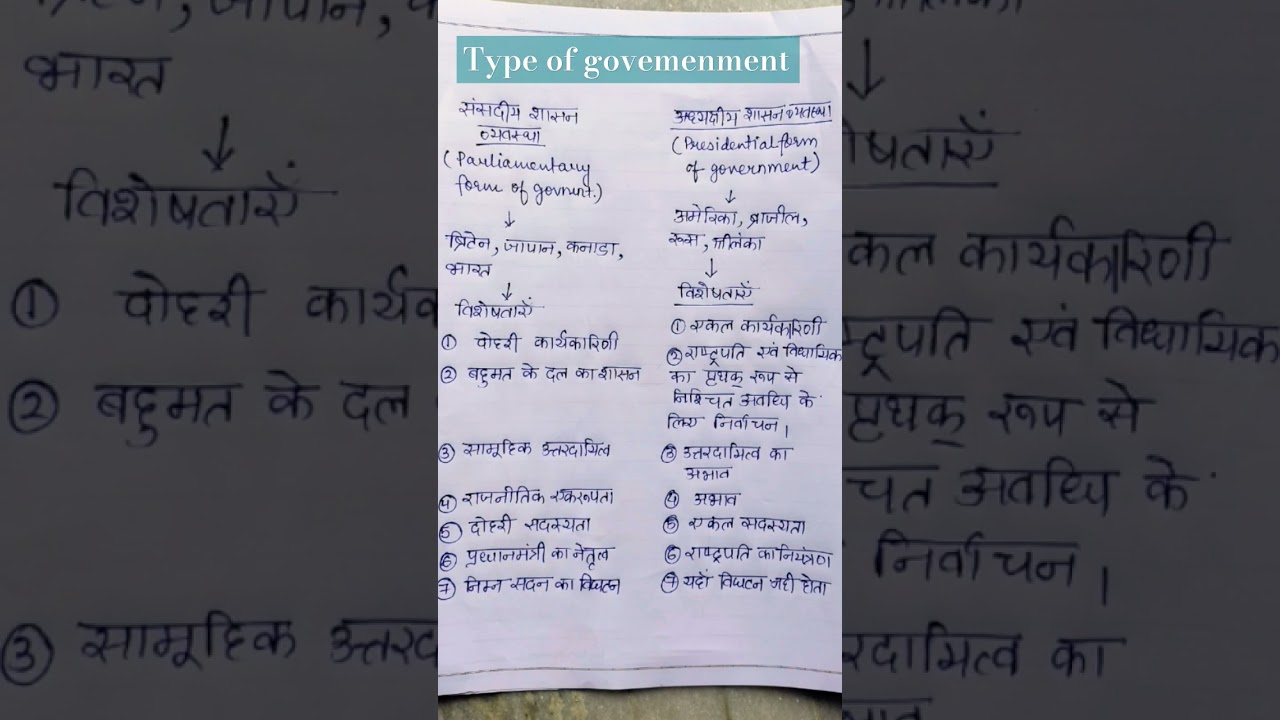 Type of govemenment
संसदीय शासन
व्यवस्था
(Parliamentary
form of govnmt.)
↓
ब्रिटेन, जापान, कनाडा,
भारत
↓
विशेषताएँ
① दोहरी कार्यकारिणी
② बहुमत के दल का शासन
③ सामूहिक उत्तरदायित्व
④ राजनीतिक एकरूपता
⑤ दोहरी सदस्यता
⑥ प्रधानमंत्री का नेतृत्व
⑦ निम्न सदन का विघटन
अध्यक्षीय शासन व्यवस्था
(Presidential form
of government)
↓
अमेरिका, ब्राजील,
रूस, श्रीलंका
↓
विशेषताएँ
① एकल कार्यकारिणी
② राष्ट्रपति एवं विधायिक
का पृथक् रूप से
निश्चित अवधि के
लिए निर्वाचन।
③ उत्तरदायित्व का
अभाव
④ अभाव
⑤ एकल सदस्यता
⑥ राष्ट्रपति का नियंत्रण
⑦ यहाँ विघटन नही होता